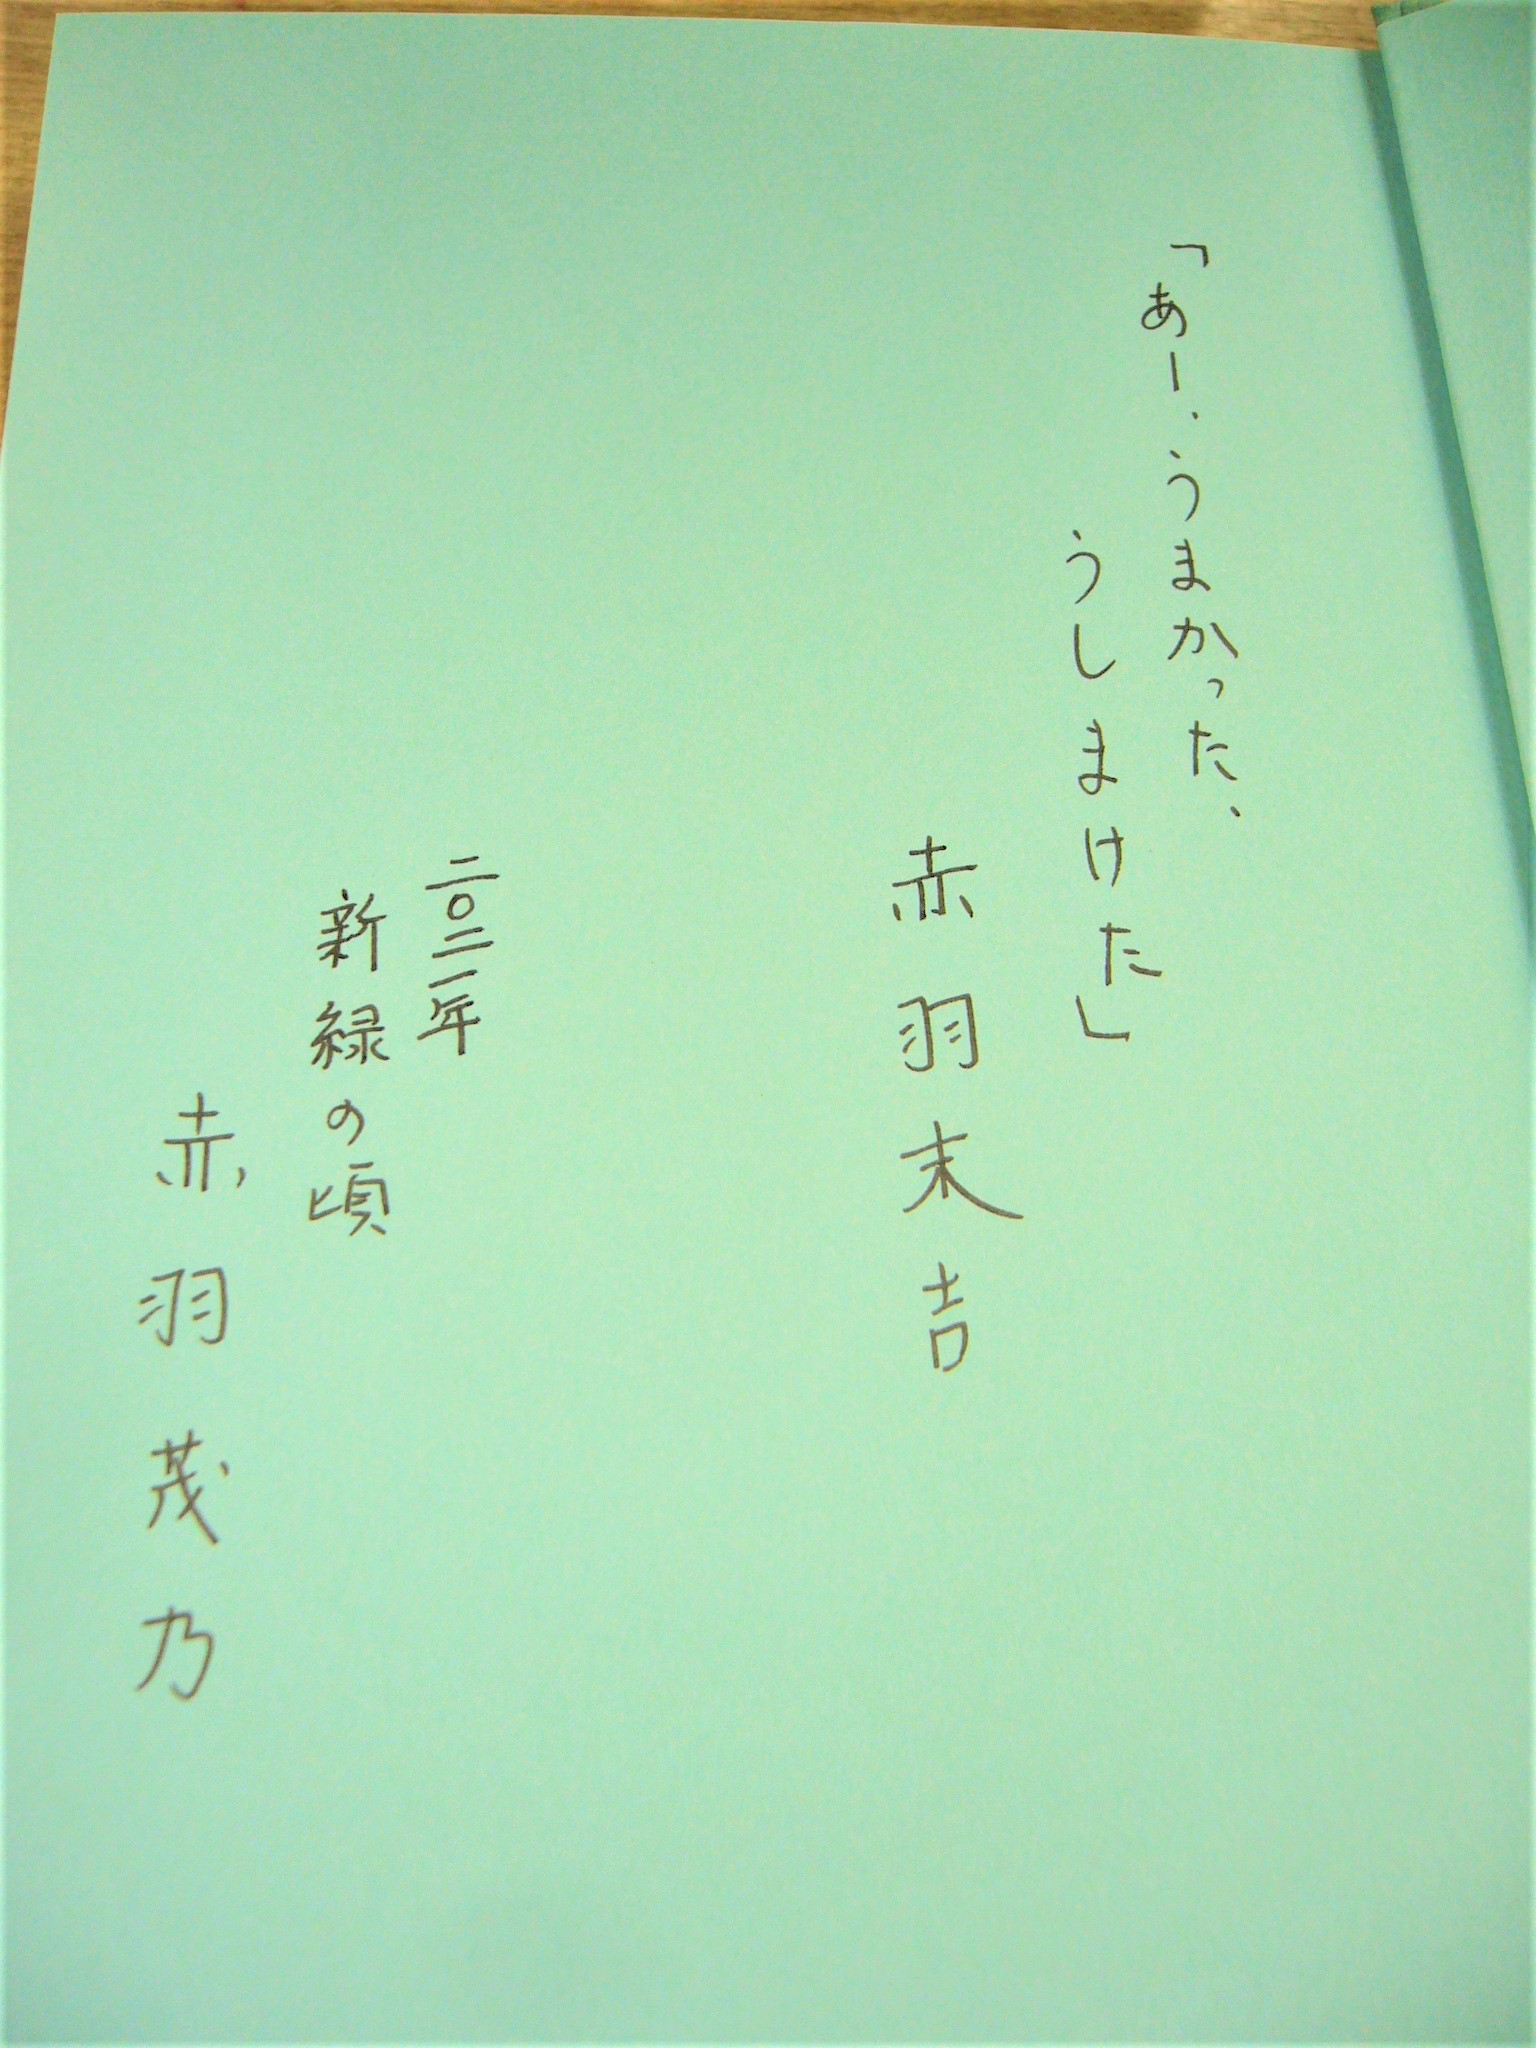 「あー、うまかった、
うしまけた」
赤羽末吉
二〇二一年
新緑の頃
赤羽茂乃